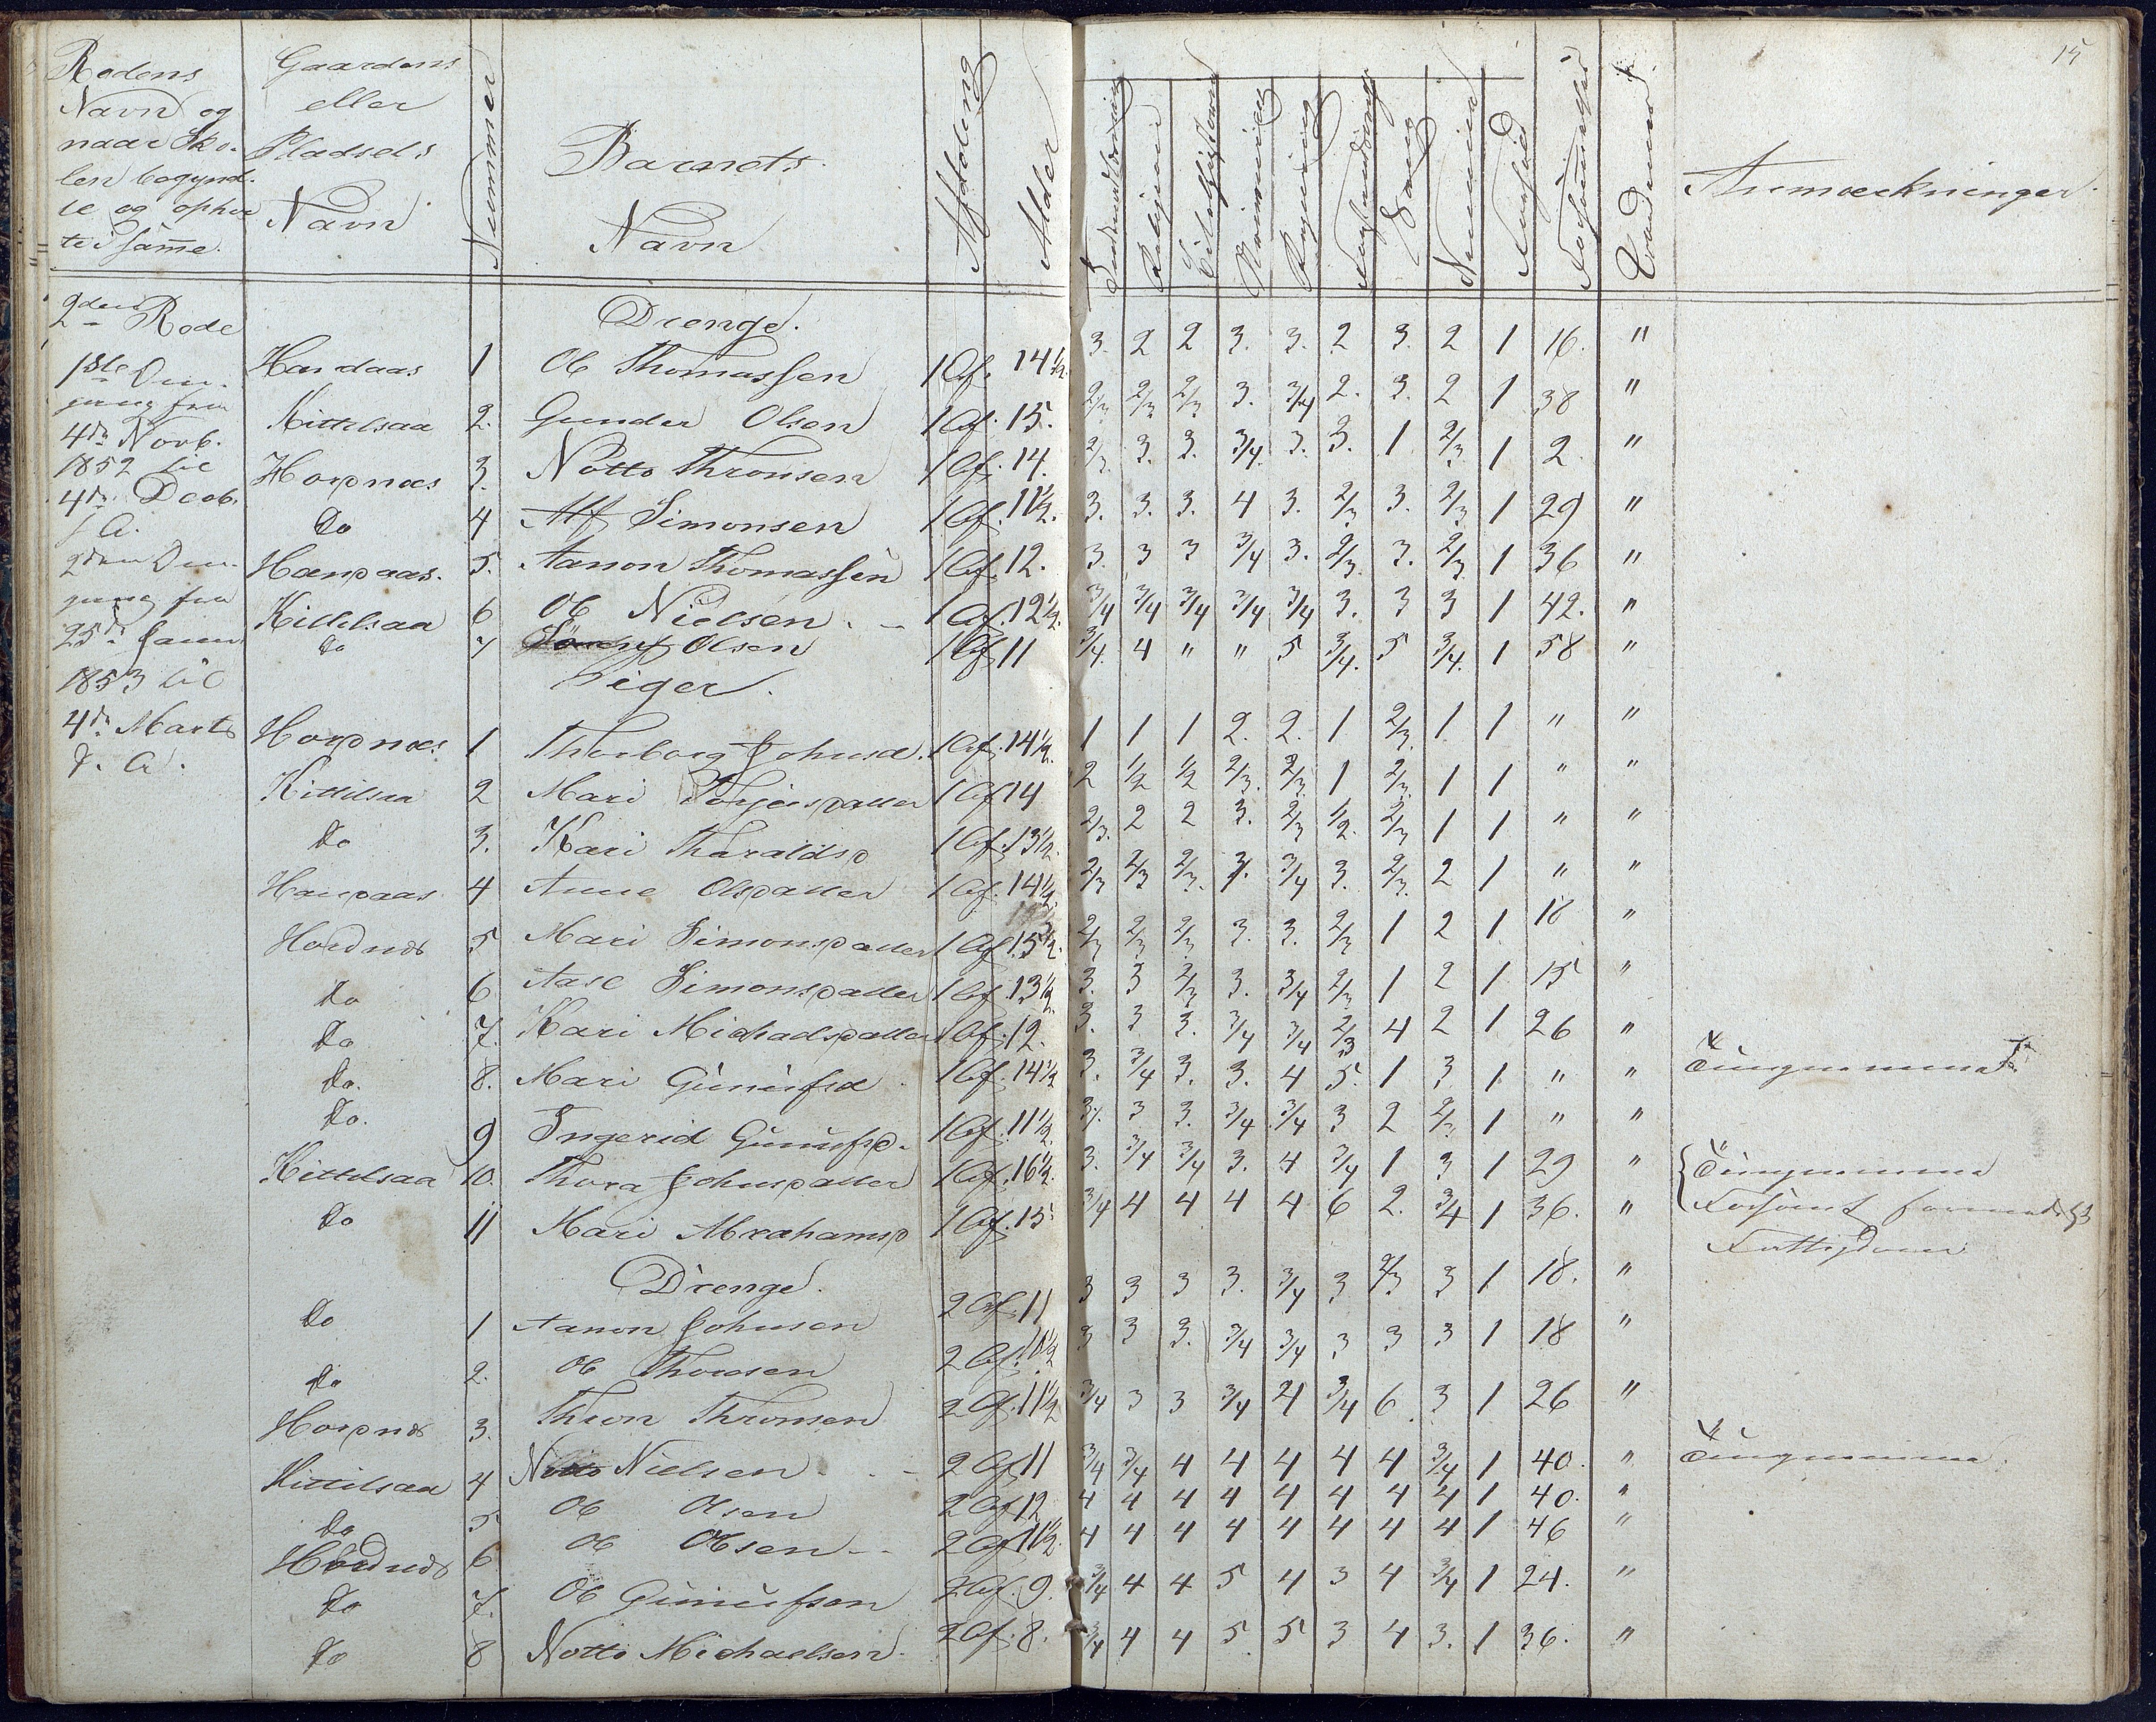 15
Rodens Navn og naar Skolen begyndte og ophørte i samme.
Gaardens eller Pladsels Navn
Nummer
Barnets Navn
Afdeling
Alder
Religion
Skrivning
Regning
Sang
Anmærkninger
2den Rode
1ste Om-
gang fra
4de Novb.
1852 til
4de Decb.
s. A.
2den Om-
gang fra
25de Janu
1853 til
4de Marts
s. A.
Drenge.
Handaas 1 Ole Thomassen 1 Af. 14 1/2. 3. 2 2 3. 3. 2 3. 2 1 16. "
Kittelsaa 2. Gunder Olsen 1 Af. 15. 2/3 2/3 2/3 3. 3/4 2. 3. 2 1 38 "
Hordnæs 3. Notto Thronsen 1 Af. 14. 2/3. 3. 3. 3/4. 3. 3. 1 2/3. 1 2 "
Do 4 Alf Simonsen 1 Af. 11 1/2. 3. 3. 3. 4 3. 2/3 3. 2/3 1 29 "
Handaas. 5. Aanon Thomassen 1 Af. 12. 3. 3 3 3/4 3. 2/3. 3. 2/3 1 36 "
Kittelsaa 6 Ole Nielsen. 1 Af. 12 1/2. 3/4 3/4 3/4 3/4 3/4 3. 3 3 1 42. "
Do 7 Olsen 1 Af 11 3/4. 4 " " 5 3/4. 5 3/4. 1 58 "
Piger.
Hordnæs 1 Thorborg Johnsd. 1 Af. 14 1/2. 1 1 1 2. 2. 1 2/3. 1 1 " "
Kittelsaa 2 Mari Torjusdatter 1 Af 14 2 1/2 1/2 2/3. 2/3. 1 2/3. 1 1 " "
Do 3. Kari Tharaldsd 1 Af. 13 1/2. 2/3. 2 2 3. 2/3 1/2. 2/3 1 1 " "
Handaas 4 Anne Olsdatter 1 Af. 14 1/2. 2/3 2/3 2/3. 3. 3/4 3. 2/3. 2 1 " "
Hordnæs 5 Mari Simonsdatter 1 Af. 15 1/2. 2/3 2/3 2/3 3. 3. 2/3 1 2 1 18 "
Do 6 Aase Simonsdatter 1 Af. 13 1/2. 3. 3 2/3 3. 3/4 2/3 1 2 1 15 "
Do 7. Kari Michaelsdatter 1 Af. 12. 3. 3 3. 3/4 3/4 2/3 4 2 1 26 "
Do. 8. Mari Gunufsd 1 Af. 14 1/2 3. 3/4 3. 3. 4 5. 1 3 1 " "
Do. 9 Ingerid Gunufsd. 1 Af. 11 1/2. 3. 3 3. 3/4 3/4 3 2 2/3 1 " "
Kittelsaa 10. Thora Johnsdatter 1 Af. 16 1/2. 3. 3/4 3/4 3. 4 3/4 1 3 1 29 "
Do 11 Mari Abrahamsd 1 Af. 15 3/4 4 4 4 4 6 2. 3/4 1 36. "
Fattigdom
Drenge.
Do 1 Aanon Johnsen 2 Af. 11 3 3 3 3. 3/4 3 2/3 3 1 18. "
Do 2. Ole Thorsen 2 Af. 3 3 3. 3/4 3/4 3 3 3 1 18 "
Hordnæs 3. Thron Thronsen 2 Af. 11 1/2 3/4 3 3 3/4 4 3/4 6 3 1 26 "
Kittelsaa 4 Notto Nielsen 2 Af 11 3/4 3/4 4 4 4 4 4 3/4 1 40. "
Do 5 Ole Olsen 2 Af 12 4 4 4 4 4 4 4 4 1 40. "
Hordnæs 6 Ole Olsen 2 Af 11 1/2. 4 4 4 4 4 4 4 4 1 46 "
Do 7. Ole Gunufsen 2 Af. 9. 3/4 4 4 5 4 3 4 3/4 1 24. "
Do 8 Notto Michaelsen. 2 Af. 8. 3/4 4 4 5 5 3 4 3. 1 36. "